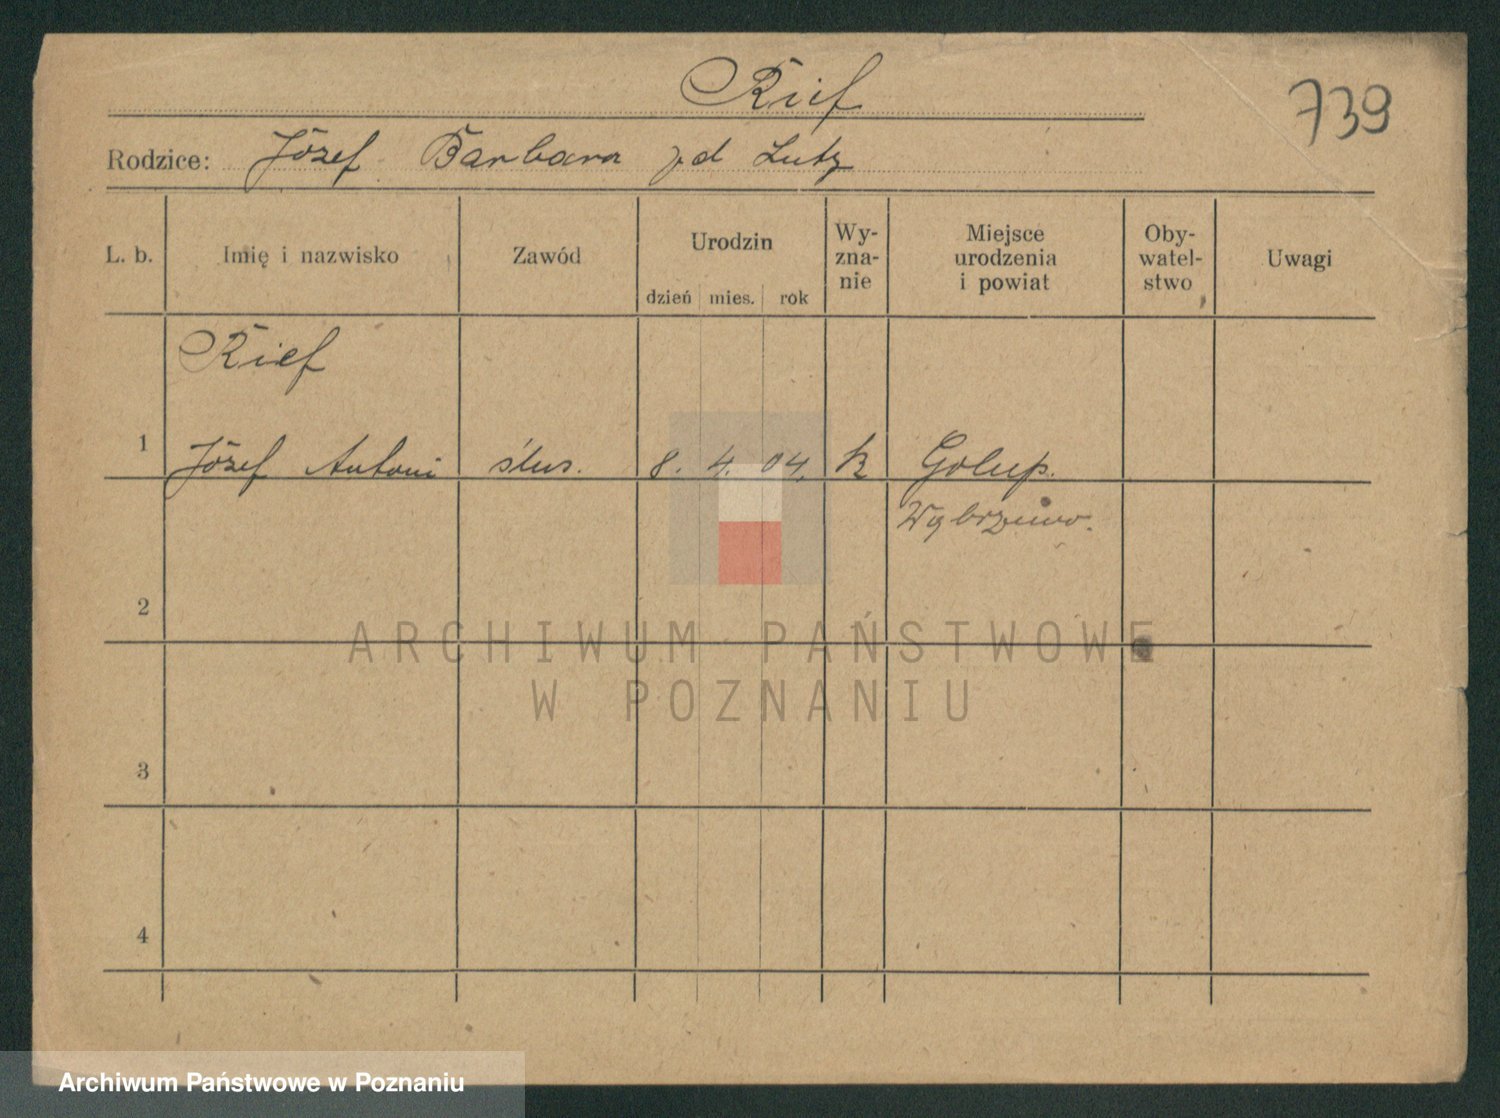 Rief
739
Rodzice: Józef Barbara zd Lutz
L. b. Imię i nazwisko Zawód Urodzin dzień mies. rok Wy-zna-nie Miejsce urodzenia i powiat Oby-watel-stwo Uwagi
Rief
1 Józef Antoni ślus. 8. 4. 04. k Golup.
Wąbrzeźno.
2
ARCHIWUM PAŃSTWOWE
W POZNANIU
3
4
Archiwum Państwowe w Poznaniu